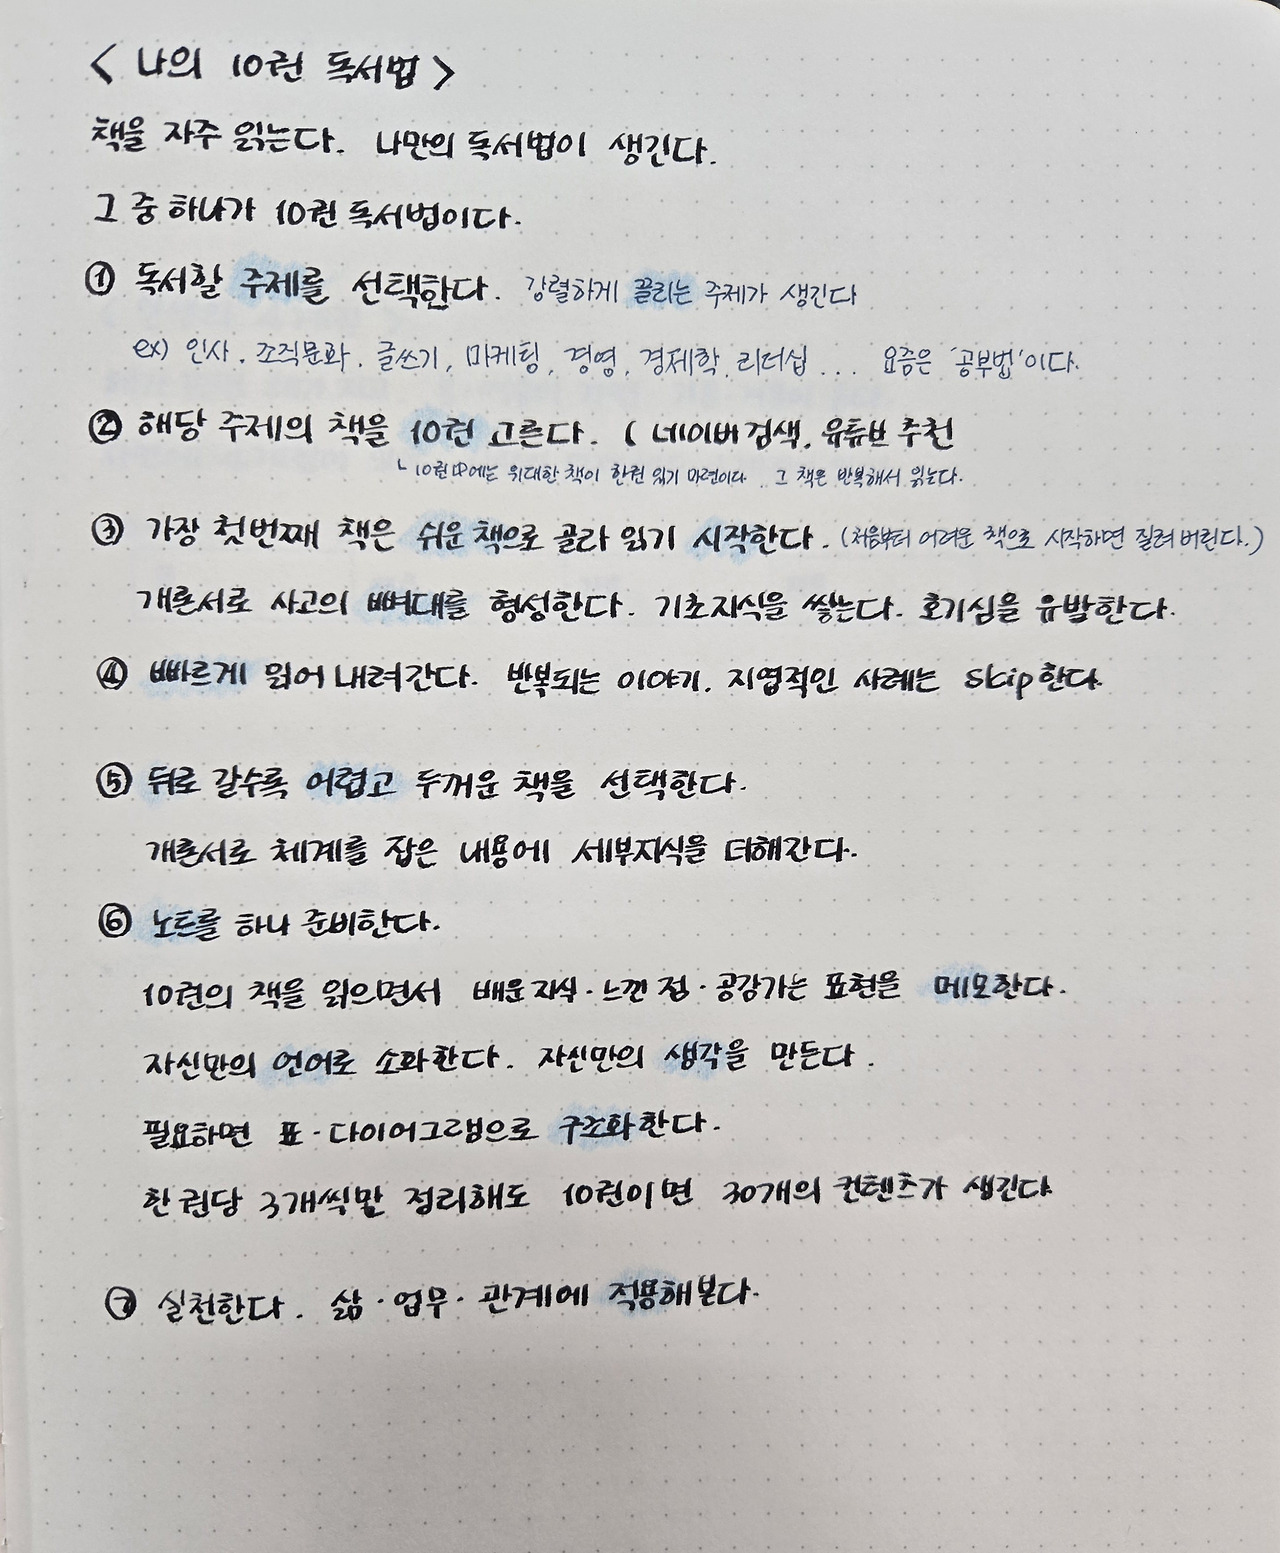 < 나의 10권 독서법 >
책을 자주 읽는다. 나만의 독서법이 생긴다.
그 중 하나가 10권 독서법이다.
① 독서할 주제를 선택한다. 강렬하게 끌리는 주제가 생긴다
ex) 인사, 조직문화, 글쓰기, 마케팅, 경영, 경제학, 리더십 ... 요즘은 '공부법'이다.
② 해당 주제의 책을 10권 고른다. ( 네이버 검색, 유튜브 추천
└ 10권 中에는 위대한 책이 한권 있기 마련이다. 그 책은 반복해서 읽는다.
③ 가장 첫번째 책은 쉬운 책으로 골라 읽기 시작한다. (처음부터 어려운 책으로 시작하면 질려 버린다.)
개론서로 사고의 뼈대를 형성한다. 기초지식을 쌓는다. 호기심을 유발한다.
④ 빠르게 읽어 내려간다. 반복되는 이야기, 지엽적인 사례는 skip한다.
⑤ 뒤로 갈수록 어렵고 두꺼운 책을 선택한다.
개론서로 체계를 잡은 내용에 세부지식을 더해간다.
⑥ 노트를 하나 준비한다.
10권의 책을 읽으면서 배운 지식·느낀 점·공감가는 표현을 메모한다.
자신만의 언어로 소화한다. 자신만의 생각을 만든다.
필요하면 표·다이어그램으로 구조화한다.
한 권당 3개씩만 정리해도 10권이면 30개의 컨텐츠가 생긴다
⑦ 실천한다. 삶·업무·관계에 적용해본다.